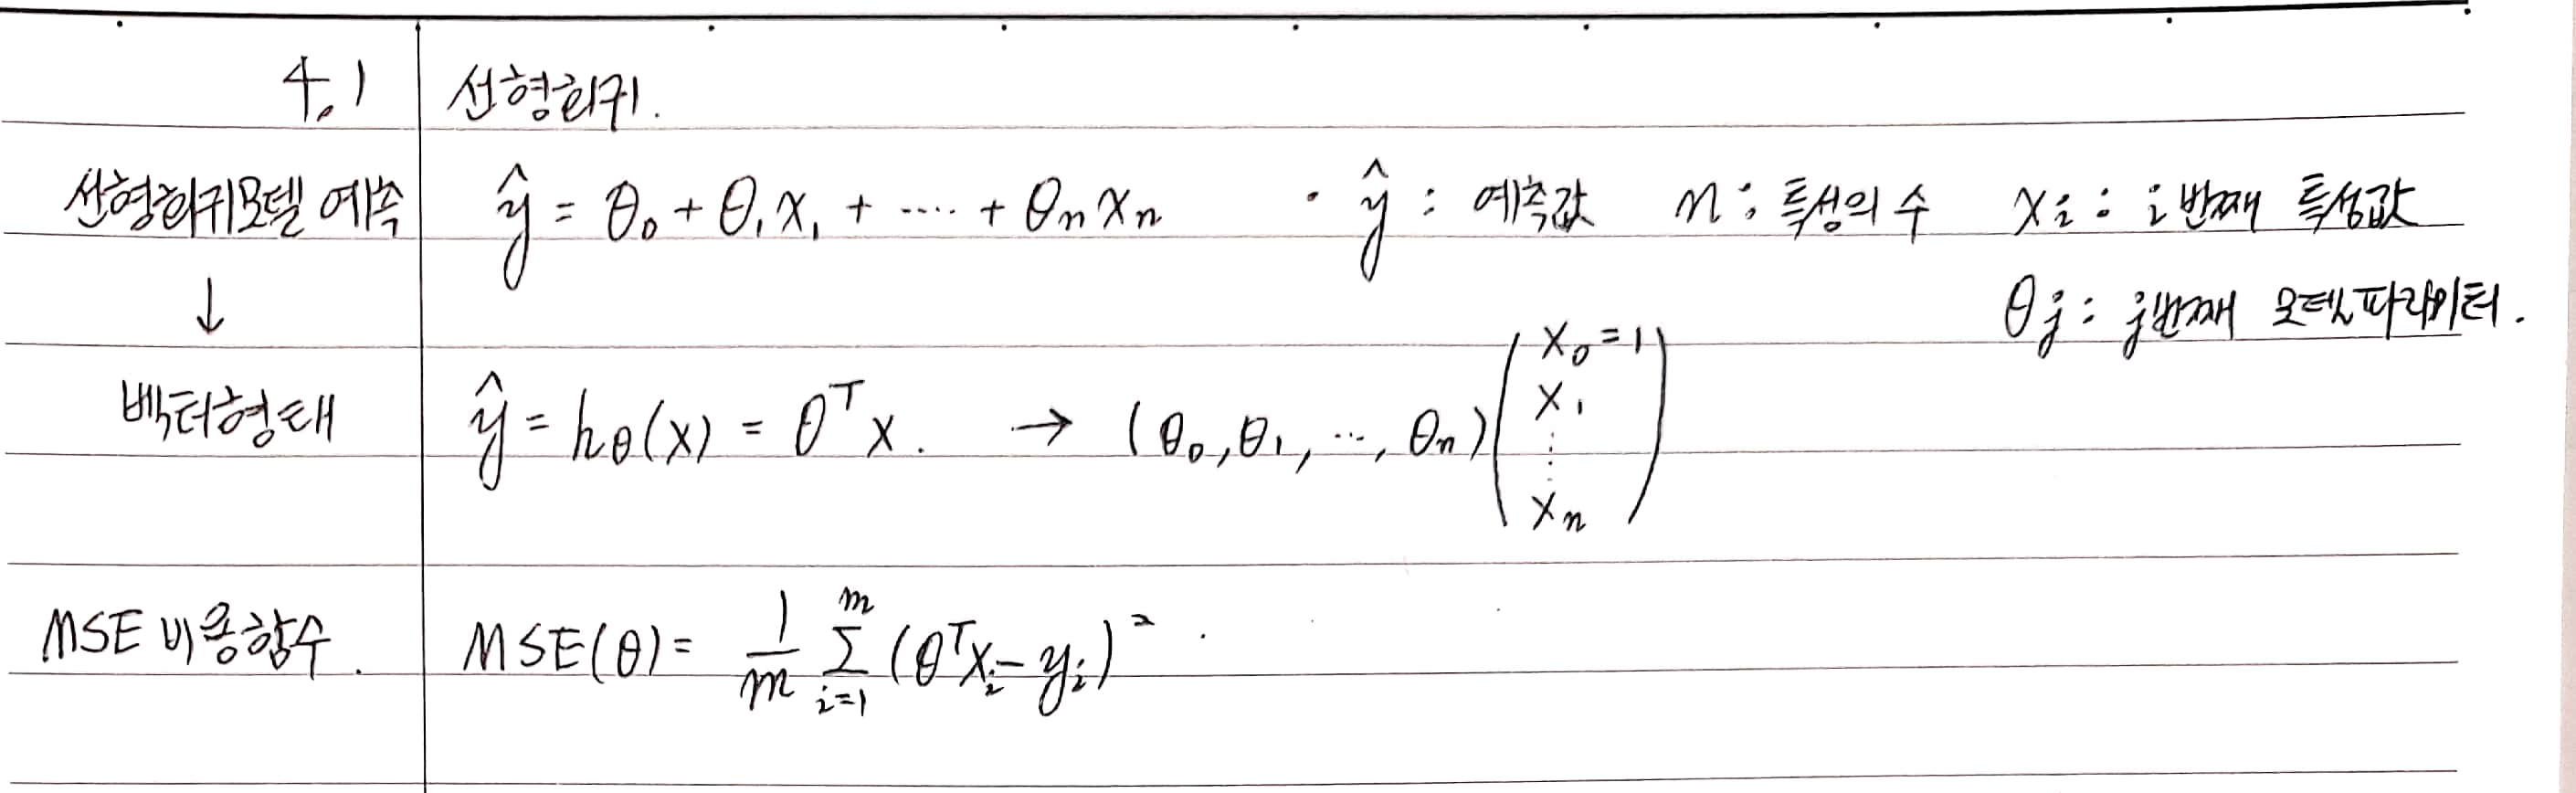 4.1 선형회귀.
선형회귀모델 예측 ŷ = θ₀ + θ₁x₁ + ···· + θₙxₙ · ŷ : 예측값 n : 특성의 수 xᵢ : i번째 특성값
↓ θⱼ : j번째 모델파라미터.
벡터형태 ŷ = hθ(x) = θᵀx. → (θ₀, θ₁, ···, θₙ) (x₀=1
x₁
⋮
xₙ)
MSE 비용함수. MSE(θ) = 1/m Σᵢ₌₁ᵐ (θᵀxᵢ - yᵢ)².